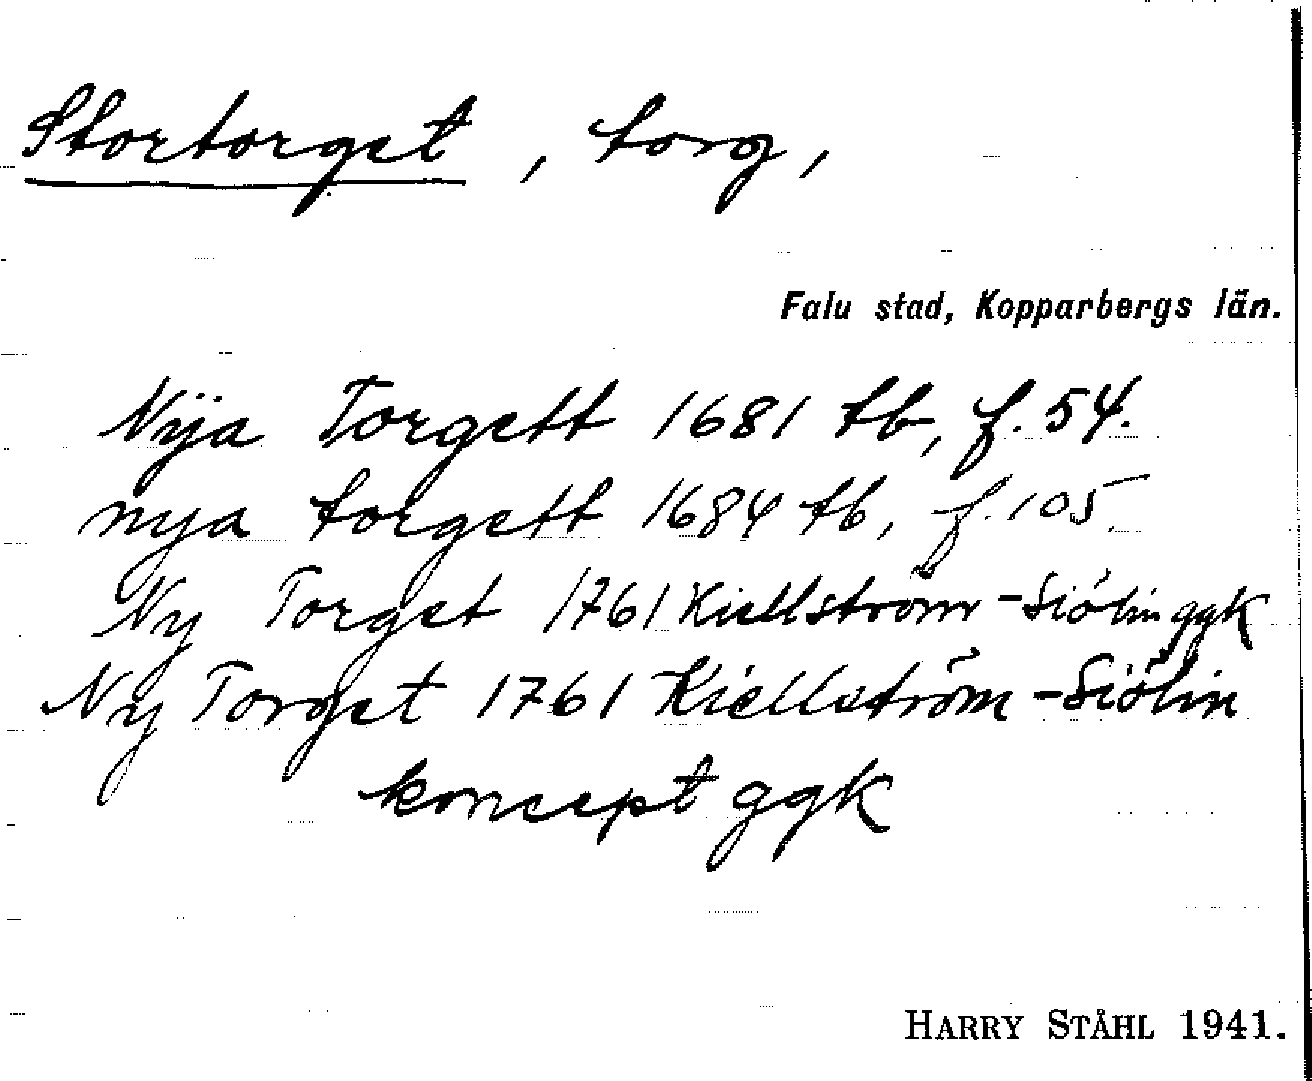 Stortorget, torg,
Falu stad, Kopparbergs län.
Nÿa Torgett 1681 tb, f. 54.
nya torgett 1684 tb, f. 105
Ny Torget 1761 Kiellström-Siölin ggk
Ny Torget 1761 Kiellström-Siölin
koncept ggk
HARRY STÅHL 1941.